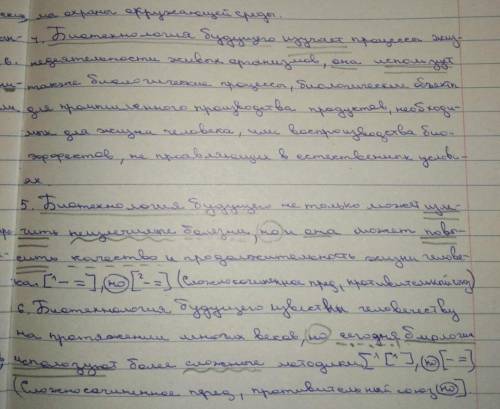 на охраны окружающей среды.
4. Биотехнология будущего изучает процессы жиз-
недеятельности живых организмов, она использует
также биологические процессы, биологические объекты
для промышленного производства продуктов, необходи-
мых для жизни человека, или воспроизводства био-
эффектов, не проявляющих в естественных услови-
ях.
5. Биотехнология будущего не только может изле-
чить неизлечимые болезни, но и она может повы-
сить качество и продолжительность жизни челове-
ка. [¹ - =], но [² - =] (Сложносочиненное пред, противительный союз)
6. Биотехнология будущего известны человечеству
на протяжении многих веков, но сегодня биологи
используют более сложные методики [¹ [¹], но [- =]
(Сложносочиненное пред, противительный союз но).